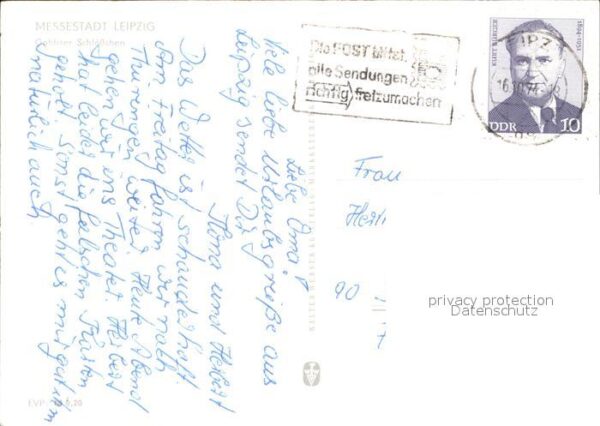 MESSESTADT LEIPZIG
Gohliser Schlößchen
Liebe Oma!
Viele liebe Urlaubsgrüße aus
Leipzig sendet Dir
Ilona und Herbert
Das Wetter ist schauderhaft.
Am Freitag fahren wir nach
Thüringen weiter. Heute Abend
gehen wir ins Theater. Herbert
hat leider die falschen Karten
geholt. Sonst geht es mir gut, ihm
natürlich auch.
EVP
0,20
Die POST bittet
alle Sendungen
richtig freizumachen
LEIPZIG
16.10.74
KURT BÜRGER
1894-1951
DDR 10
Frau
Herr
90
privacy protection
Datenschutz